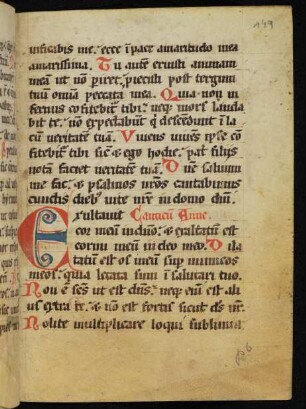 149
uificabis me. ecce i pace amaritudo mea
amarissima. Tu aute eruisti animam
meam ut no piret. piecisti post tergum
tuu omia peccata mea. Quia no in
fernus cofitebit tibi. neq; mors lauda
bit te. no expectabut q descendut i la
cu ueritatem tuam. Viuens uiuens ipse co
fitebit tibi sic & ego hodie. pat filijs
nota faciet ueritate tua. Dne saluum
me fac. & psalmos nros cantabimus
cunctis dieb; uite nre in domo dni.
Exultauit Canticu Anne.
cor meu in dno. & exaltatum est
cornu meu in deo meo. Dila
tatu est os meu sup inimicos
meos. quia letata sum i salutari tuo.
Non e scs ut est dns. neq; eni est ali
us extra te. & no est fortis sicut ds nr.
Nolite multiplicare loqui sublimia